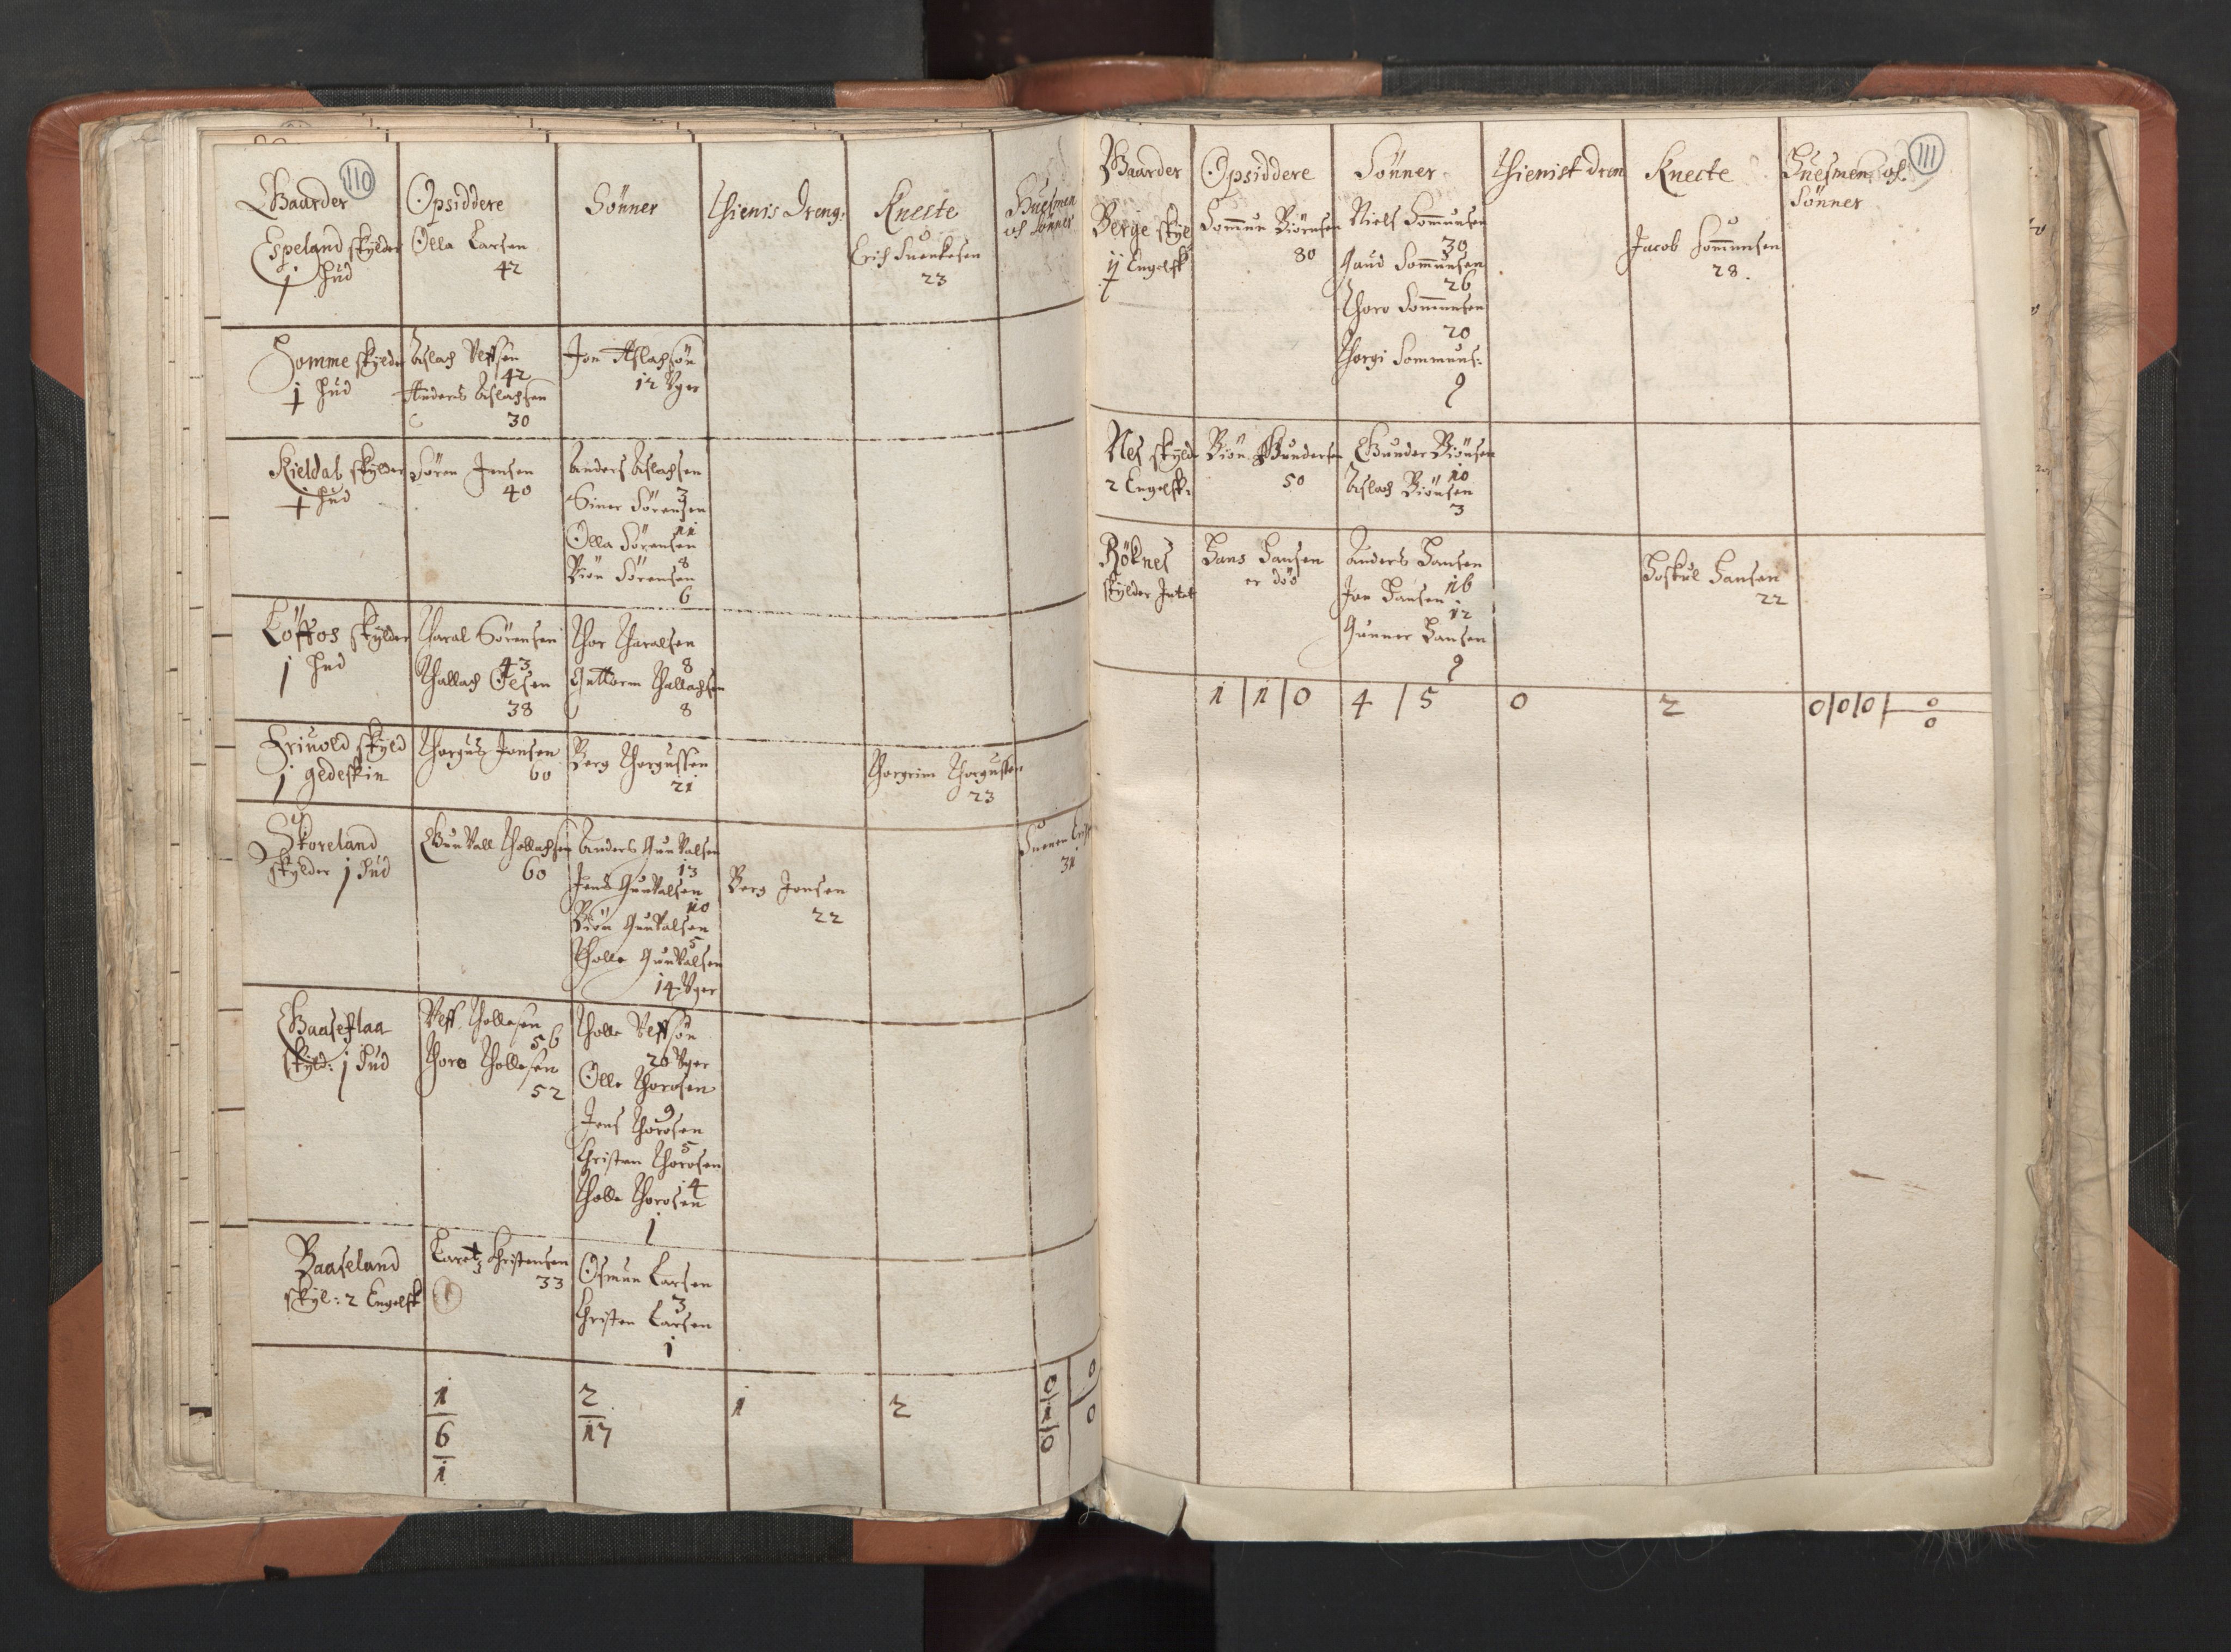 110
Gaarder
Opsiddere
Sönner
Thienis Dreng:
Knecte
Huusmen
och Sönner
Espeland skylder
j Hud
Olla Larsen
42
Erich Suenkesen
23
Homme skylder
j Hud
Aslach Ueffsen
42
Anders Aslachsen
30
Jon Aslachsön
12 Uger
Kieldal skylder
j Hud
Sören Jensen
40
Anders Aslachsen
3
Siner Sörensen
11
Olla Sörensen
8
Biön Sörensen
6
Löffos skylder
j Hud
Tharal Sörensen
43
Thallach Olsen
38
Thor Tharalsen
8
Guttorm Thallachsen
8
Griuold skyld
j gedeskin
Thorgus Jonsen
60
Berg Thorgussen
21
Thorgrim Thorgussen
23
Skoreland
skylder j Hud
Gunvall Thollachsen
60
Anders Gunvalsen
13
Jens Gunvalsen
10
Biön Gunvalsen
5
Tholle Gunvalsen
14 Uger
Berg Jonsen
22
Suenen
31
Baaseflaa
skyld: j Hud
Ueff Thollesen
56
Thoro Thollesen
52
Tholle Ueffsön
20 Uger
Olle Thorosen
9
Jens Thorosen
5
Christen Thorosen
4
Tholle Thorosen
1
Baaseland
skyl: 2 Engelsk
Laretz Christensen
33
Osmun Larsen
3
Christen Larsen
1
1
6
1
2
17
1
2
0|1|0
0
0
111
Gaarder
Opsiddere
Sönner
Thienist dren
Knecte
Huusmen och
Sönner
Berge skyl
ij Engelsk
Sommun Biörnsen
80
Niels Sommunsen
30
Gaud Sommunsen
26
Thoro Sommunsen
20
Thorgi Sommuns:
9
Jacob Sommunsen
28.
Nes skyld
2 Engelsk:
Biön Gundersen
50
Gunder Biönsen
10
Aslach Biönsen
3
Röknes
skylder Intet
Hans Hansen
er död
Anders Hansen
16
Jon Hansen
12
Gunner Hansen
9
Hoskul Hansen
22
1|1|0
4/5
0
2
0|0|0
0
0